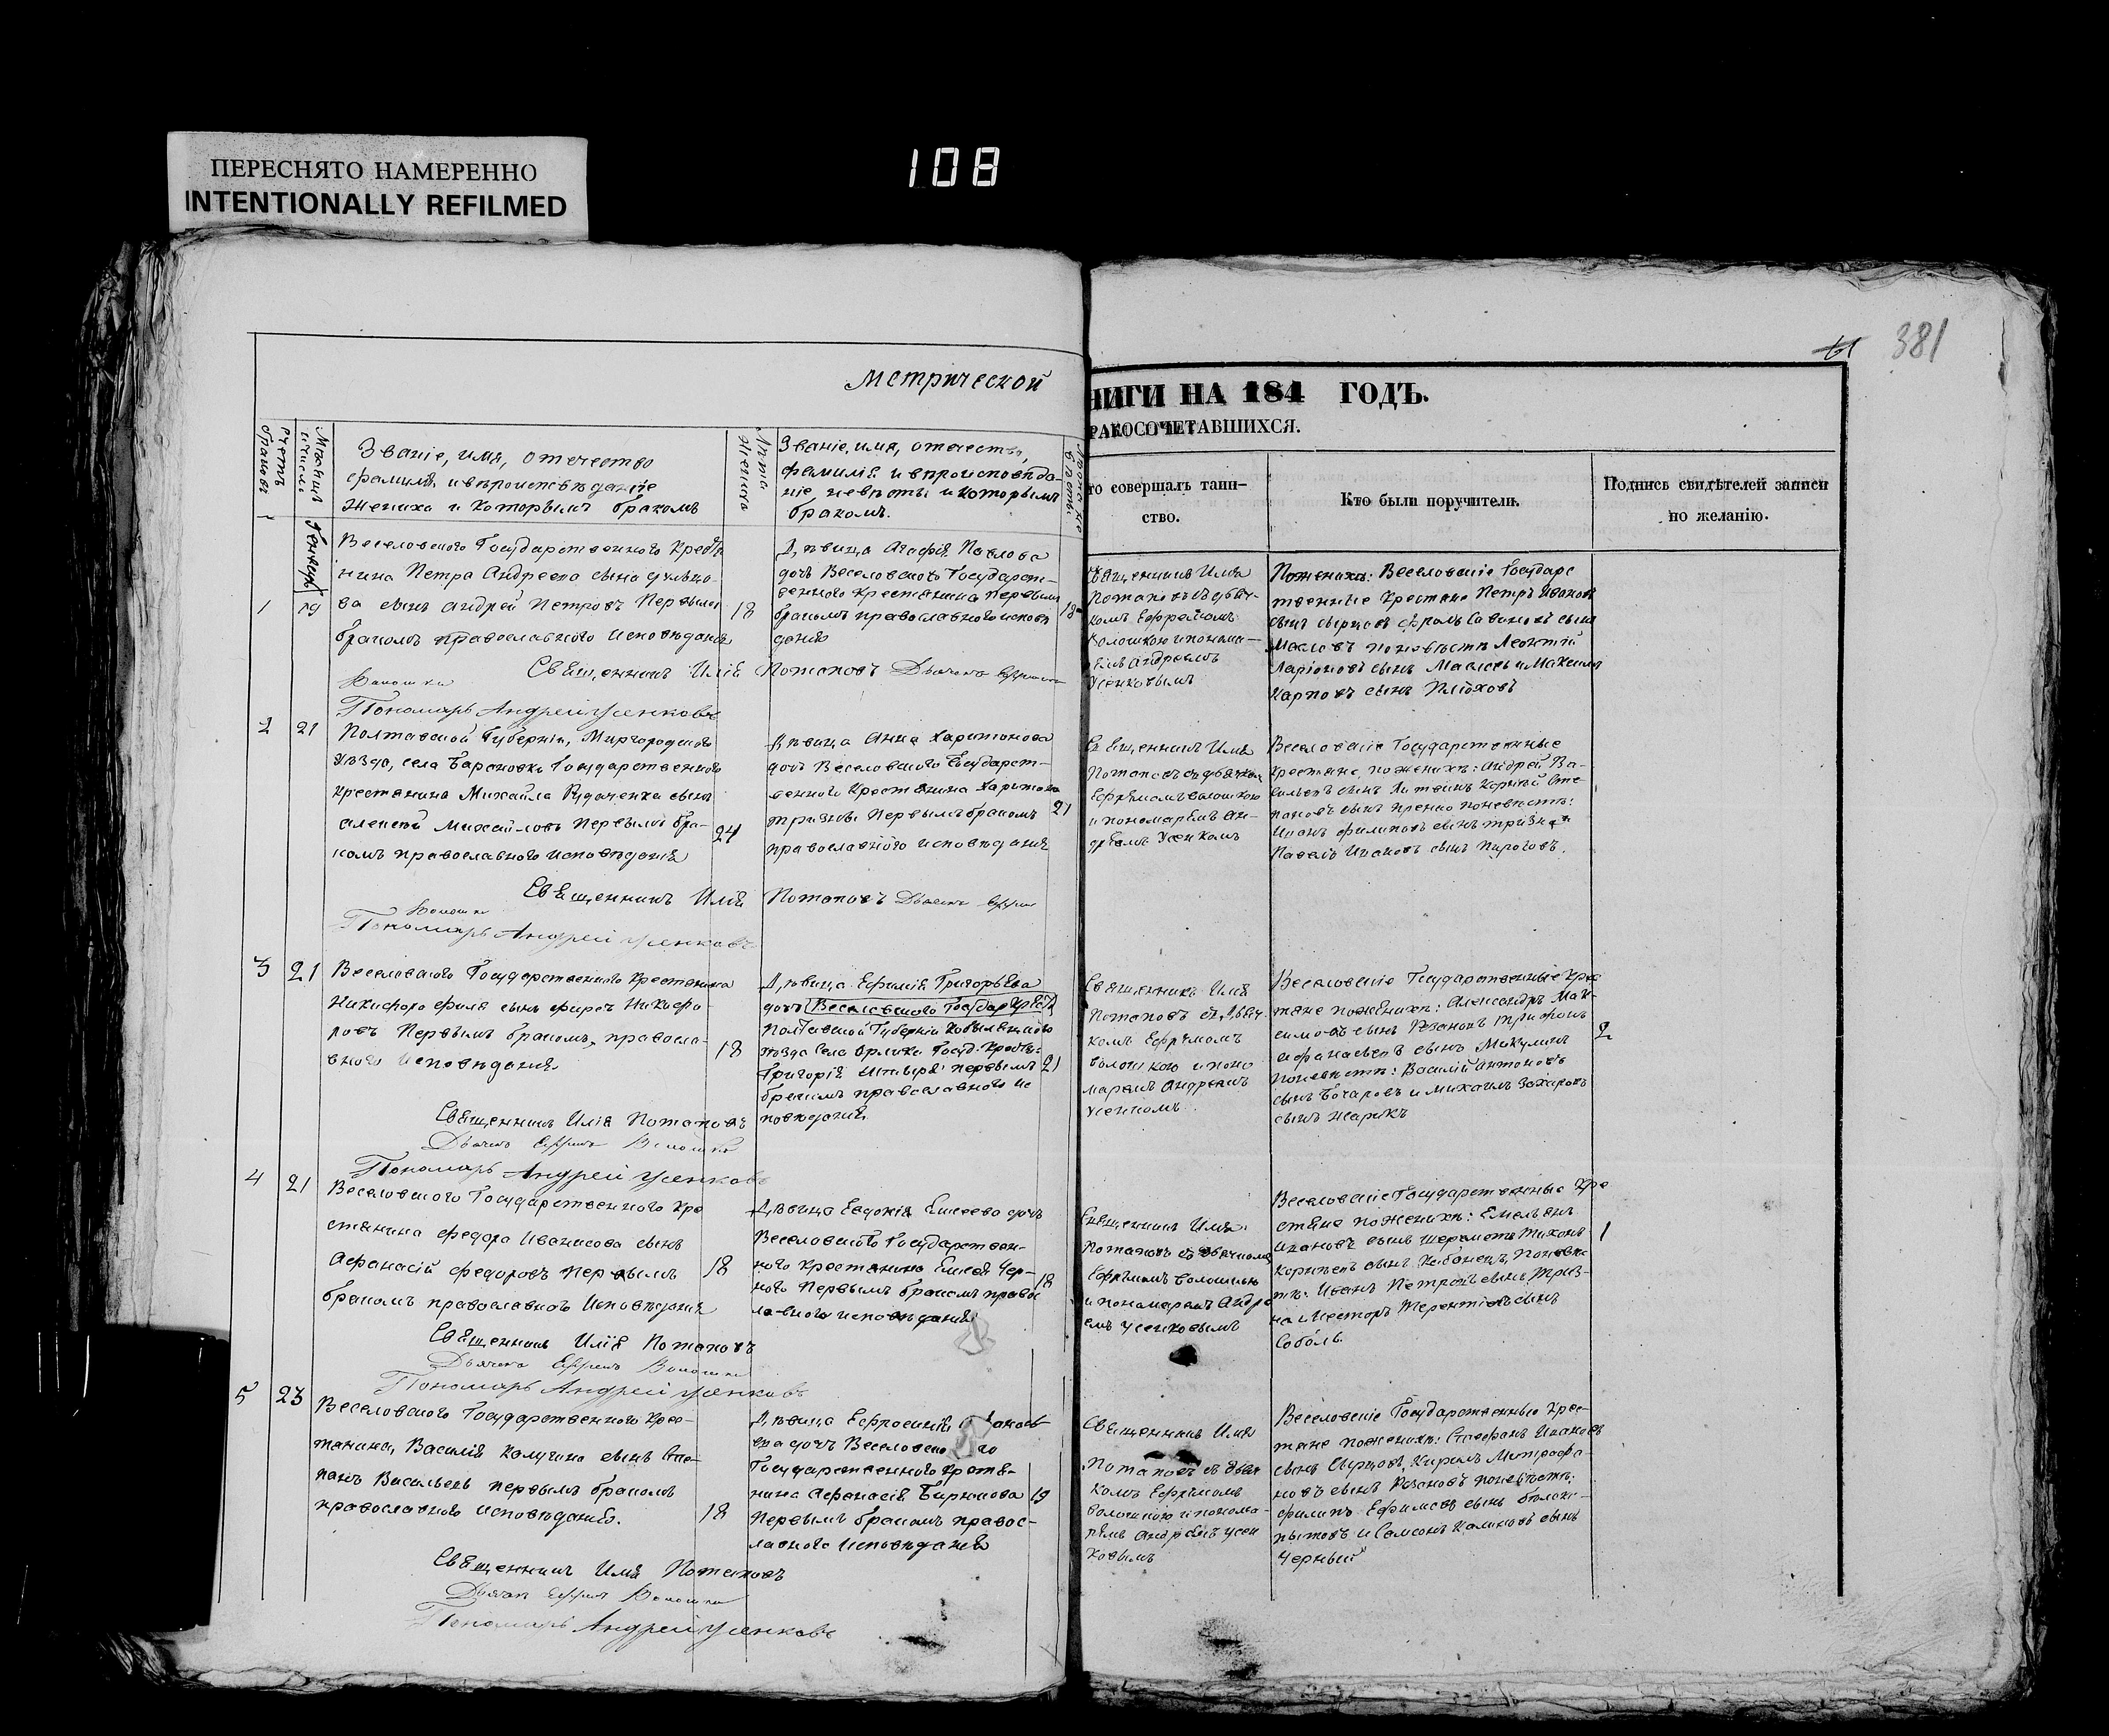 ПЕРЕСНЯТО НАМЕРЕННО
INTENTIONALLY REFILMED
108
381
Метрической
НИГИ НА 184 ГОДЪ.
РАКОСОЧЕТАВШИХСЯ.
Счетъ браковъ
Мѣсяцъ и число
Званіе, имя, отечество
фамилія и вѣроисповѣданіе
жениха и которымъ бракомъ
Лѣта жениха
Званіе, имя, отечество,
фамилія и вѣроисповѣда-
ніе невѣсты и которымъ
бракомъ.
то совершалъ таин-
ство.
Кто были поручители.
Подпись свидѣтелей записи
по желанію.
Генварь
1
19
Веселовского Государственного Крестя
нина Петра Андреева сына
ва сынъ Андрей Петровъ Первымъ
бракомъ православного исповѣданія
18
Дѣвица Агафія Павлова
дочь Веселовского Государст-
венного Крестянина Первым
бракомъ православного исповѣ
данія
18
Священникъ Илія
Потаповъ съ дьяч-
комъ Ефремомъ
Волошкою и понома-
ремъ Андреемъ
Усенковымъ
По женихѣ: Веселовскіе Государс
твенные Крестяне Петръ Иванов
сынъ Сырцовъ Фролъ Савиновъ сынъ
Масловъ по невѣстѣ Леонтій
Ларіоновъ сынъ Маслов и Максимъ
Карповъ сынъ
Священникъ Илія Потаповъ Дьячокъ Ефремъ
Волошка
Пономарь Андрей Усенковъ
2
21
Полтавской Губерніи, Миргородского
уѣзда, села Барановки Государственного
крестянина Михайла Рудаченка сынъ
Алексѣй Михайловъ Первымъ бра-
комъ православного исповѣданія
24
Дѣвица Анна Харитонова
дочь Веселовского Государст-
венного Крестянина Харитона
Тризны Первымъ бракомъ
православного исповѣданія
21
Священникъ Илія
Потаповъ съ дьячком
Ефремомъ Волошкою
и пономаремъ Ан-
дреемъ Усенкомъ
Веселовскіе Государственные
крестяне, по женихѣ: Андрей Ва-
сильевъ сынъ Корнѣй Сте
пановъ сынъ по невѣстѣ:
Иванъ Филиповъ сынъ Тризна и
Павелъ Ивановъ сынъ Пироговъ.
Священникъ Илія Потаповъ Дьячокъ Ефремъ
Волошка
Пономарь Андрей Усенковъ
3
21
Веселовского Государственного Крестянина
Никифора Филя сынъ Фирсъ Никифо-
ровъ Первымъ бракомъ, правосла-
вного исповѣданія
18
Дѣвица Ефимія Григорьева
дочь Веселовского Государ Крест
Полтавской Губерніи Кобыляцкого
уѣзда Села Орлика Госуд. Крест.
Григорія первымъ
бракомъ православного ис
повѣданія.
21
Священникъ Илія
Потаповъ съ дьяч-
комъ Ефремомъ
Волошкою и поно
маремъ Андреемъ
Усенкомъ.
Веселовскіе Государственные Крес
тяне по женихѣ: Александръ Мак-
симовъ сынъ Рязановъ Трифонъ
Афанасьевъ сынъ Микулинъ
по невѣстѣ: Василій Антоновъ
сынъ Бочаровъ и Михаилъ Захаровъ
сынъ
2
Священникъ Илія Потаповъ
Дьячокъ Ефремъ Волошка
Пономарь Андрей Усенковъ
4
21
Веселовского Государственного Кре
стянина Федора Иванисова сынъ
Афанасій Федоровъ Первымъ
бракомъ православного исповѣданія
18
Дѣвица Евдокія Елисеева дочь
Веселовского Государствен-
ного крестянина Елисея Чер-
ного Первымъ бракомъ правос
лавного исповѣданія
18
Священникъ Илія
Потаповъ съ дьячкомъ
Ефремомъ Волошкою
и пономаремъ Андре
емъ Усенковымъ
Веселовскіе Государственные Кре
стяне по женихѣ: Емельянъ
Ивановъ сынъ Шереметъ Тихонъ
Корнѣевъ сынъ Кабанецъ, По невѣс
тѣ: Иванъ Петровъ сынъ Триз-
на и Несторъ Терентіевъ сынъ
Соболь.
1
Священникъ Илія Потаповъ
Дьячокъ Ефремъ Волошка
Пономарь Андрей Усенковъ
5
23
Веселовского Государственного Крес-
тянина, Василія Калугина сынъ Сте-
панъ Васильевъ первымъ бракомъ
православного исповѣданія.
18
Дѣвица Ефросинія
ева дочь Веселовского
Государственного Крестя-
нина Афанасія Бирюкова
Первымъ бракомъ правос-
лавного исповѣданія
19
Священникъ Илія
Потаповъ съ дьяч
комъ Ефремомъ
Волошкою и понома-
ремъ Андреемъ Усен
ковымъ
Веселовскіе Государственные Крес-
тяне по женихѣ: Стефанъ Ивановъ
сынъ Сырцовъ, Кирилъ Митрофа-
новъ сынъ Рязановъ по невѣстѣ:
Филипъ Ефимовъ сынъ Бѣлоко-
пытовъ и Самсонъ Калиновъ сынъ
Черный
Священникъ Илія Потаповъ
Дьячокъ Ефремъ Волошка
Пономарь Андрей Усенковъ